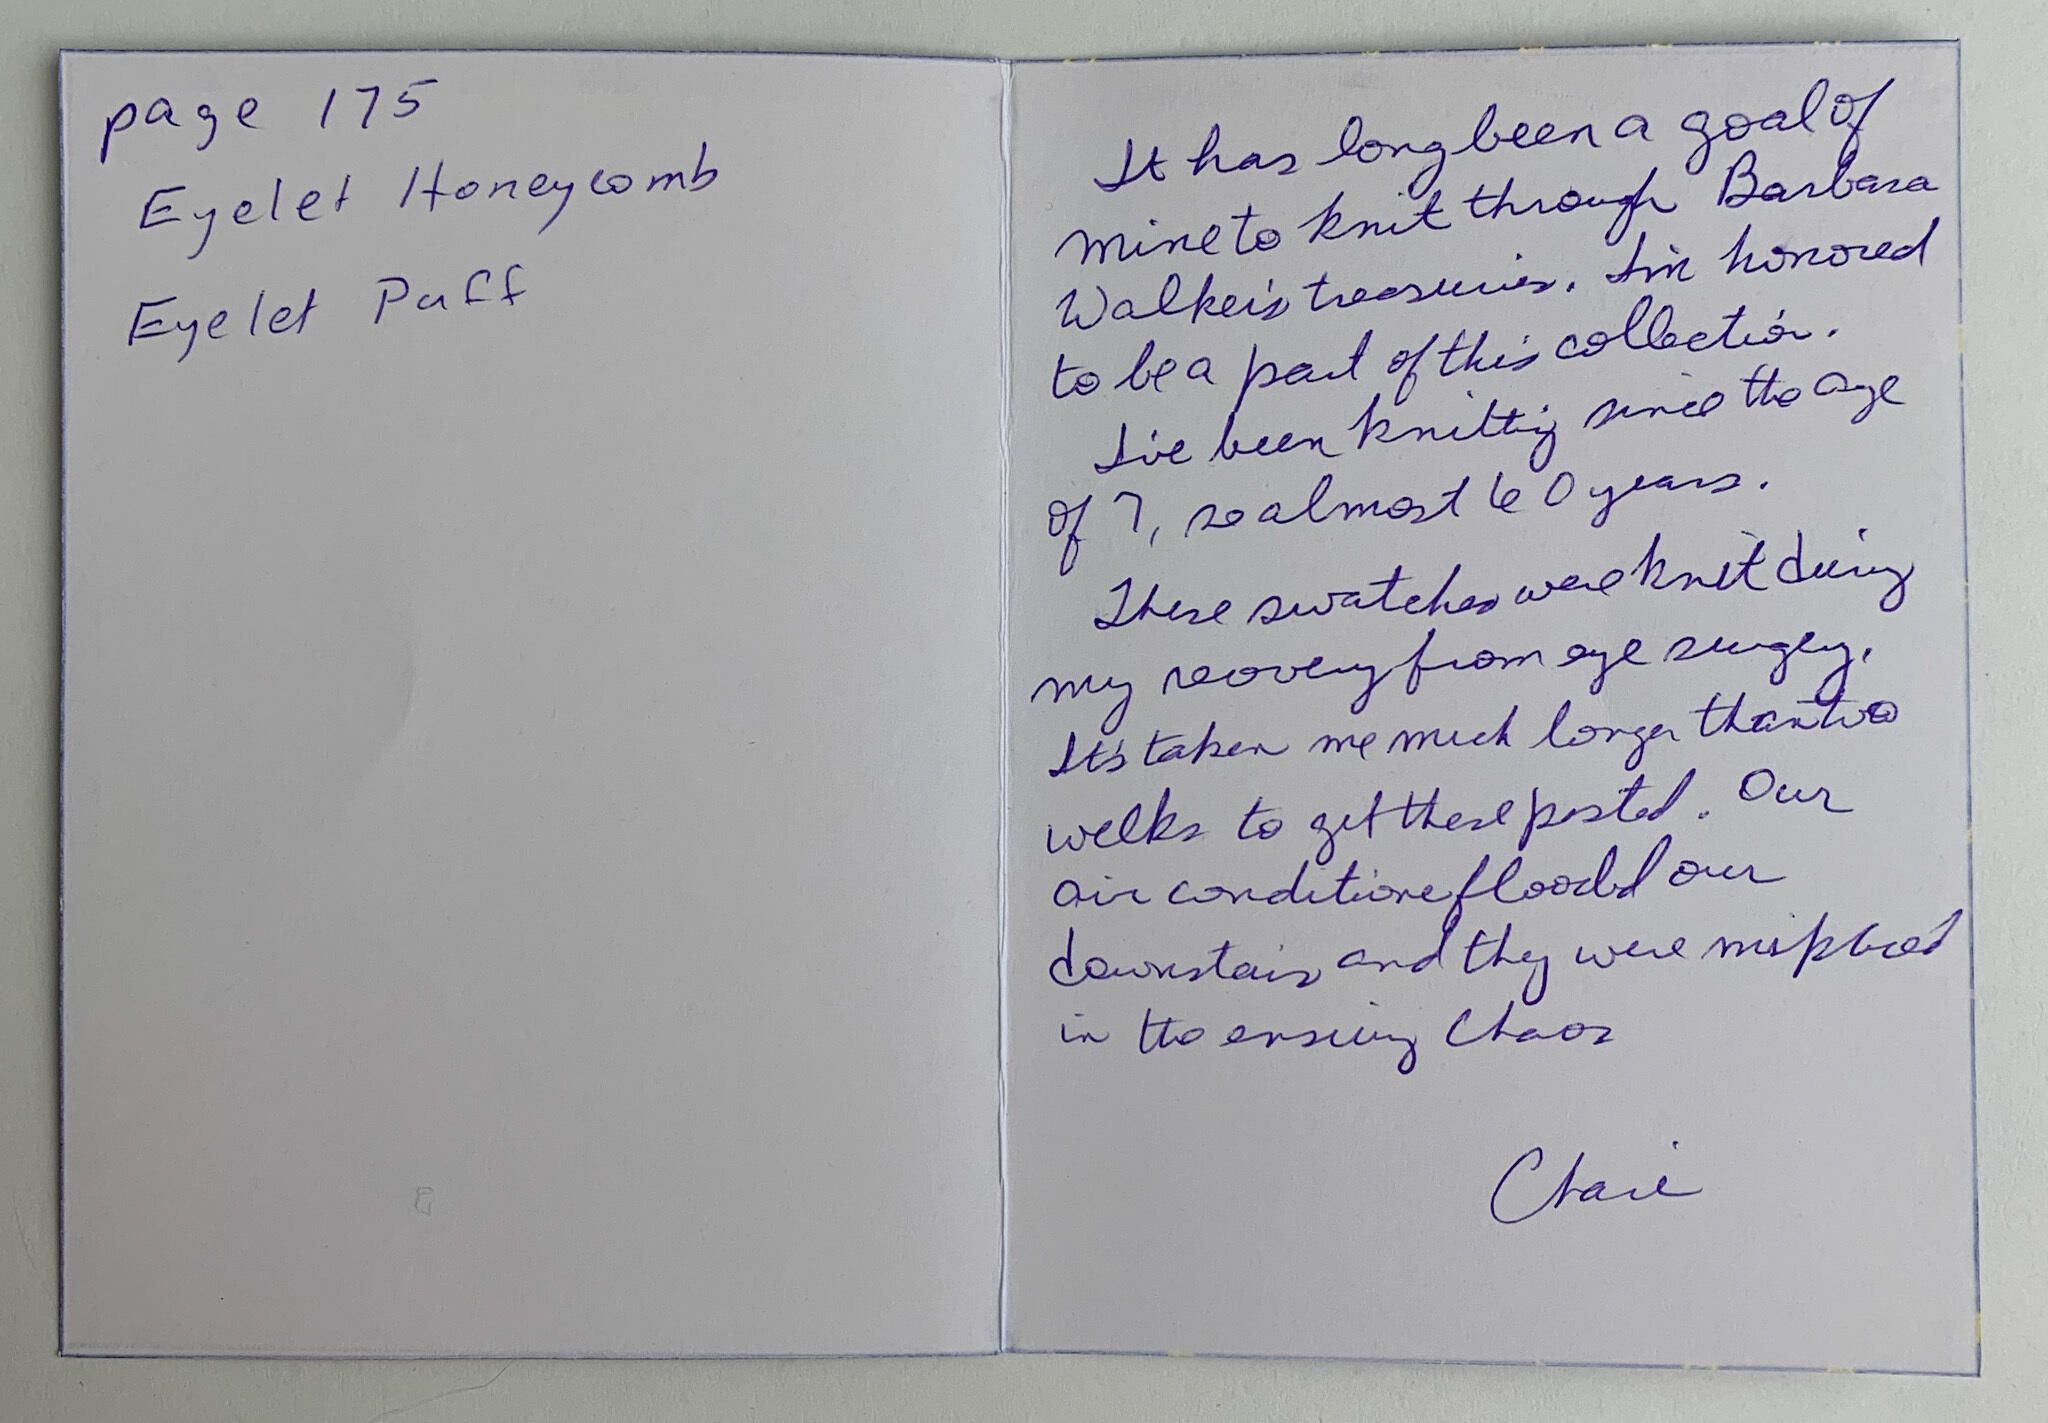 page 175
Eyelet Honeycomb
Eyelet Puff
It has long been a goal of
mine to knit through Barbara
Walker's treasuries. I'm honored
to be a part of this collection.
I've been knitting since the age
of 7, so almost 60 years.
These swatches were knit during
my recovery from eye surgery.
It's taken me much longer than two
weeks to get these posted. Our
air conditioner flooded our
downstairs and they were misplaced
in the ensuing chaos